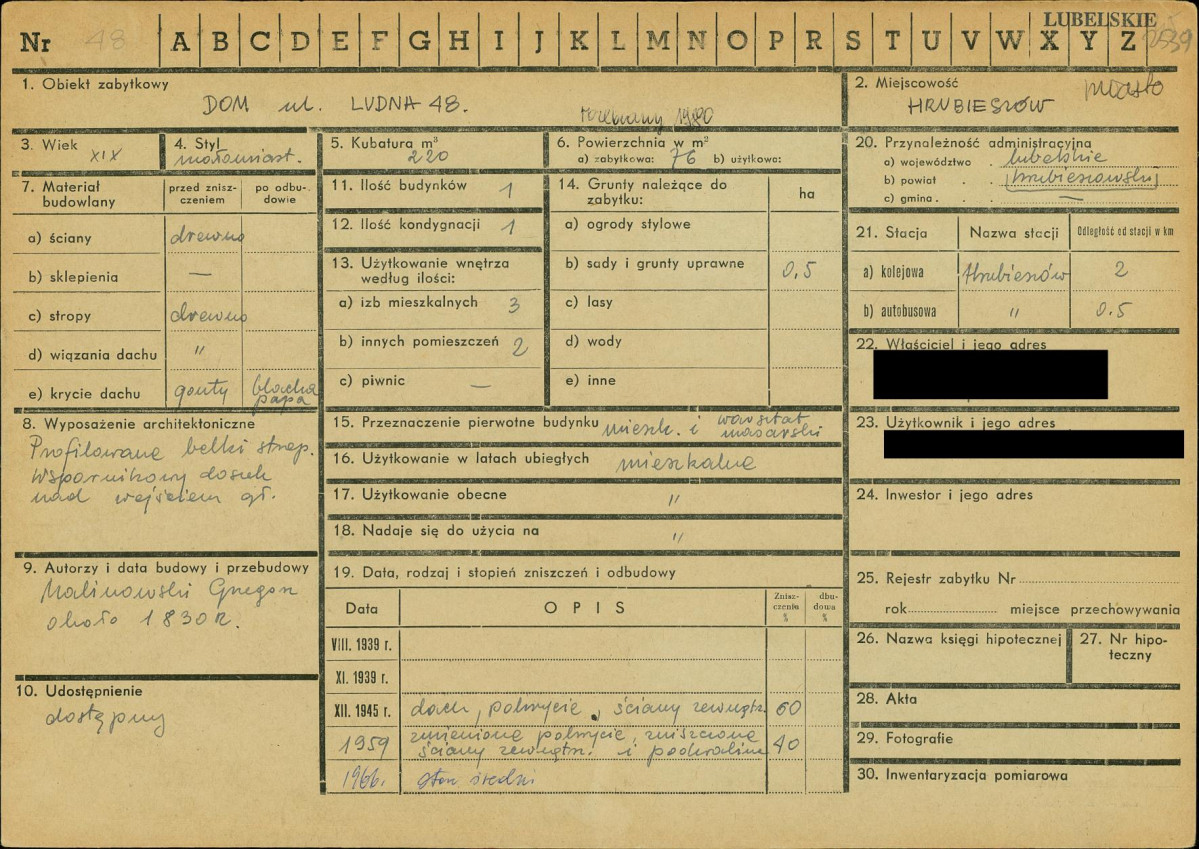 LUBELSKIE
Nr 48 A B C D E F G H I J K L M N O P R S T U V W X Y Z 2539
1. Obiekt zabytkowy
DOM ul. LUDNA 48.
rozebrany 1980
2. Miejscowość miasto
HRUBIESZÓW
3. Wiek XIX
4. Styl małomiast.
5. Kubatura m³ 220
6. Powierzchnia w m²
a) zabytkowa: 76 b) użytkowa:
7. Materiał budowlany
przed znisz-
czeniem
po odbu-
dowie
a) ściany drewno
b) sklepienia —
c) stropy drewno
d) wiązania dachu "
e) krycie dachu gonty blacha
papa
8. Wyposażenie architektoniczne
Profilowane belki strop.
Wspornikowy daszek
nad wejściem gł.
9. Autorzy i data budowy i przebudowy
Malinowski Grzegorz
około 1830 r.
10. Udostępnienie
dostępny
11. Ilość budynków 1
12. Ilość kondygnacji 1
13. Użytkowanie wnętrza
według ilości:
a) izb mieszkalnych 3
b) innych pomieszczeń 2
c) piwnic —
14. Grunty należące do
zabytku:
ha
a) ogrody stylowe
b) sady i grunty uprawne 0,5
c) lasy
d) wody
e) inne
15. Przeznaczenie pierwotne budynku mieszk. i warsztat
masarski
16. Użytkowanie w latach ubiegłych mieszkalne
17. Użytkowanie obecne "
18. Nadaje się do użycia na "
19. Data, rodzaj i stopień zniszczeń i odbudowy
Data OPIS
Znisz-
czeniu
%
dbu-
dowa
%
VIII. 1939 r.
XI. 1939 r.
XII. 1945 r. dach, pokrycie, ściany zewnątrz. 60
1959 zmienione pokrycie, zniszczone
ściany zewnątrz. i podwalina 40
1966. stan średni
20. Przynależność administracyjna
a) województwo . lubelskie
b) powiat . . hrubieszowski
c) gmina . . —
21. Stacja Nazwa stacji Odległość od stacji w km
a) kolejowa Hrubieszów 2
b) autobusowa " 0.5
22. Właściciel i jego adres
23. Użytkownik i jego adres
24. Inwestor i jego adres
25. Rejestr zabytku Nr
rok miejsce przechowywania
26. Nazwa księgi hipotecznej
27. Nr hipo-
teczny
28. Akta
29. Fotografie
30. Inwentaryzacja pomiarowa